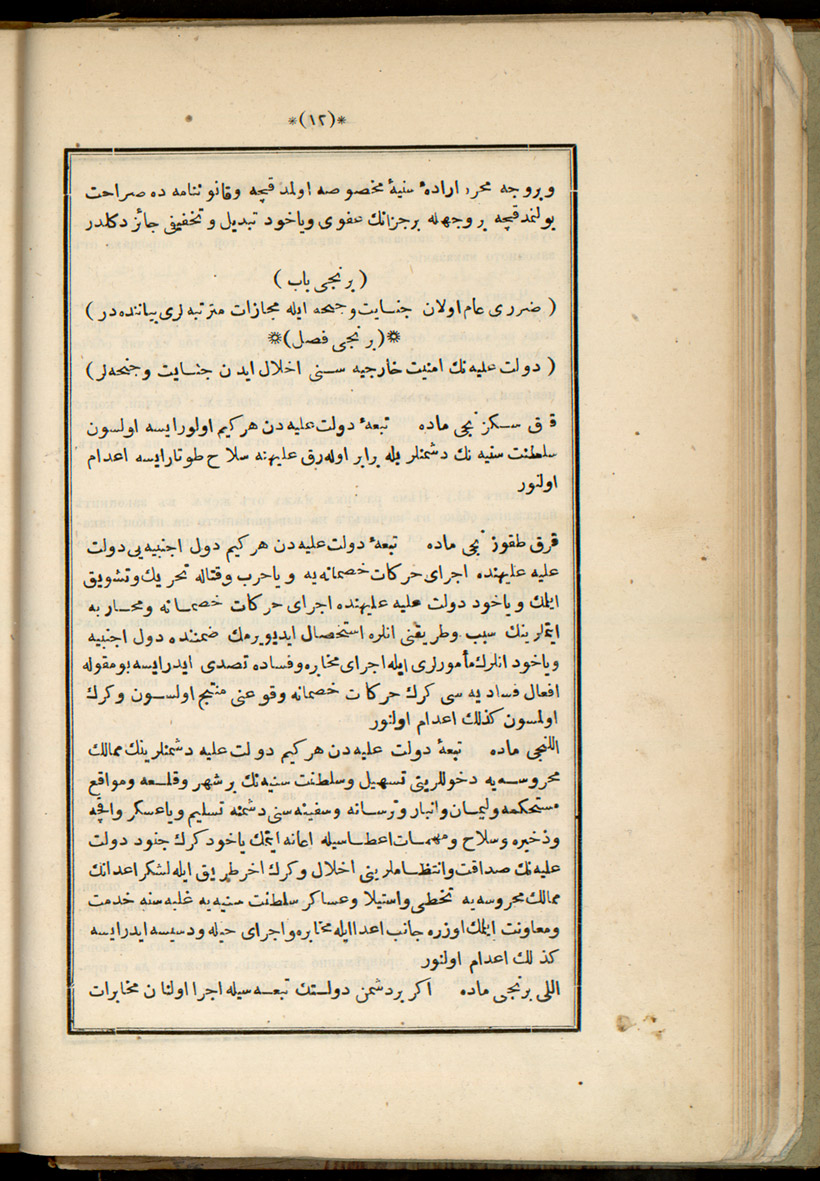 *(١٢)*
وبروجه محرر ارادهٔ سنیهٔ مخصوصه اولمدقجه وقانوننامه ده صراحت
بولنمدقجه بروجهله برجزانك عفوی ویاخود تبدیل وتخفیفی جائز دکلدر
(برنجی باب)
(ضرری عام اولان جنایت وجنحه ایله مجازات مترتبه لری بیاننده در)
*(برنجی فصل)*
(دولت علیه نك امنیت خارجیه سنی اخلال ایدن جنایت وجنحه لر)
قرق سکزنجی ماده تبعهٔ دولت علیه دن هرکیم اولورایسه اولسون
سلطنت سنیه نك دشمنلریله برابر اوله رق علیهنه سلاح طوتارایسه اعدام
اولنور
قرق طقوزنجی ماده تبعهٔ دولت علیه دن هرکیم دول اجنبیه یی دولت
علیه علیهنده اجرای حرکات خصمانه یه ویاحرب وقتاله تحریك وتشویق
ایتمك ویاخود دولت علیه علیهنده اجرای حرکات خصمانه ومحاربه
ایتملرینك سبب وطریقنی انلره استحصال ایدیویرمك ضمننده دول اجنبیه
ویاخود انلرك مأمورلری ایله اجرای مخابره وفساده تصدی ایدرایسه بومقوله
افعال فسادیه سی کرك حرکات خصمانه وقوعنی منتج اولسون وکرك
اولمسون کذلك اعدام اولنور
اللنجی ماده تبعهٔ دولت علیه دن هرکیم دولت علیه دشمنلرینك ممالك
محروسه یه دخوللرینی تسهیل وسلطنت سنیه نك برشهر وقلعه ومواقع
مستحکمه ولیمان وانبار وترسانه وسفینه سنی دشمنه تسلیم ویاعسکر واقچه
وذخیره وسلاح ومهمات اعطاسیله اعانه ایتمك یاخود کرك جنود دولت
علیه نك صداقت وانتظاملرینی اخلال وکرك اخر طریق ایله لشکر اعدانك
ممالك محروسه یه تخطی واستیلا وعساکر سلطنت سنیه یه غلبه سنه خدمت
ومعاونت ایلمك اوزره جانب اعدا ایله مخابره واجرای حیله ودسیسه ایدرایسه
کذلك اعدام اولنور
اللی برنجی ماده اکر بردشمن دولتك تبعه سیله اجرا اولنان مخابرات